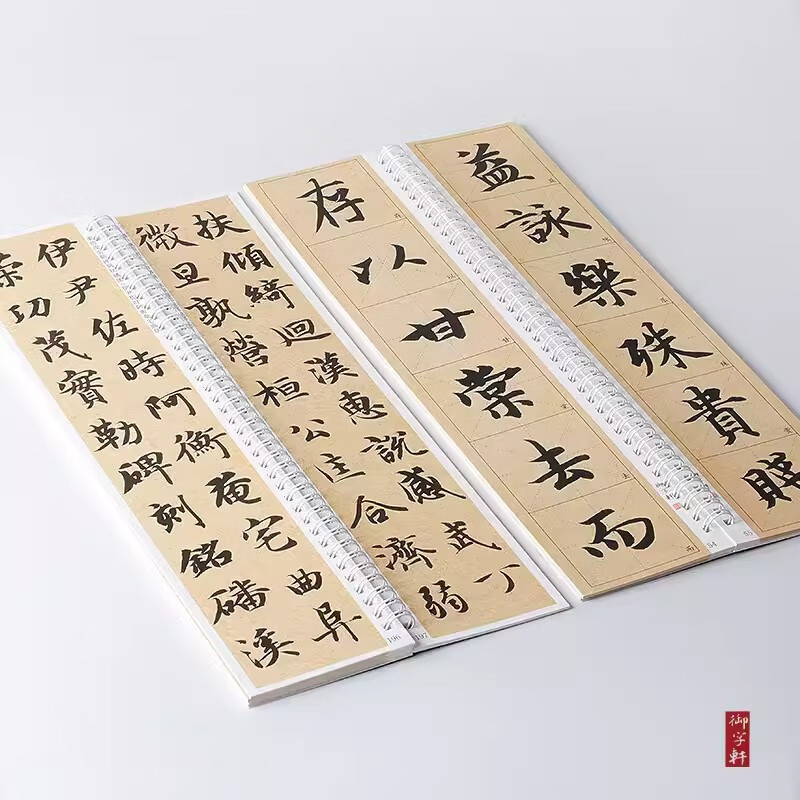 策功茂實勒碑刻銘磻溪
伊尹佐時阿衡奄宅曲阜
微旦孰營桓公匡合濟弱
扶傾綺迴漢惠說感武丁
196
197
存以甘棠去而
益詠樂殊貴賤
54
55
御字軒